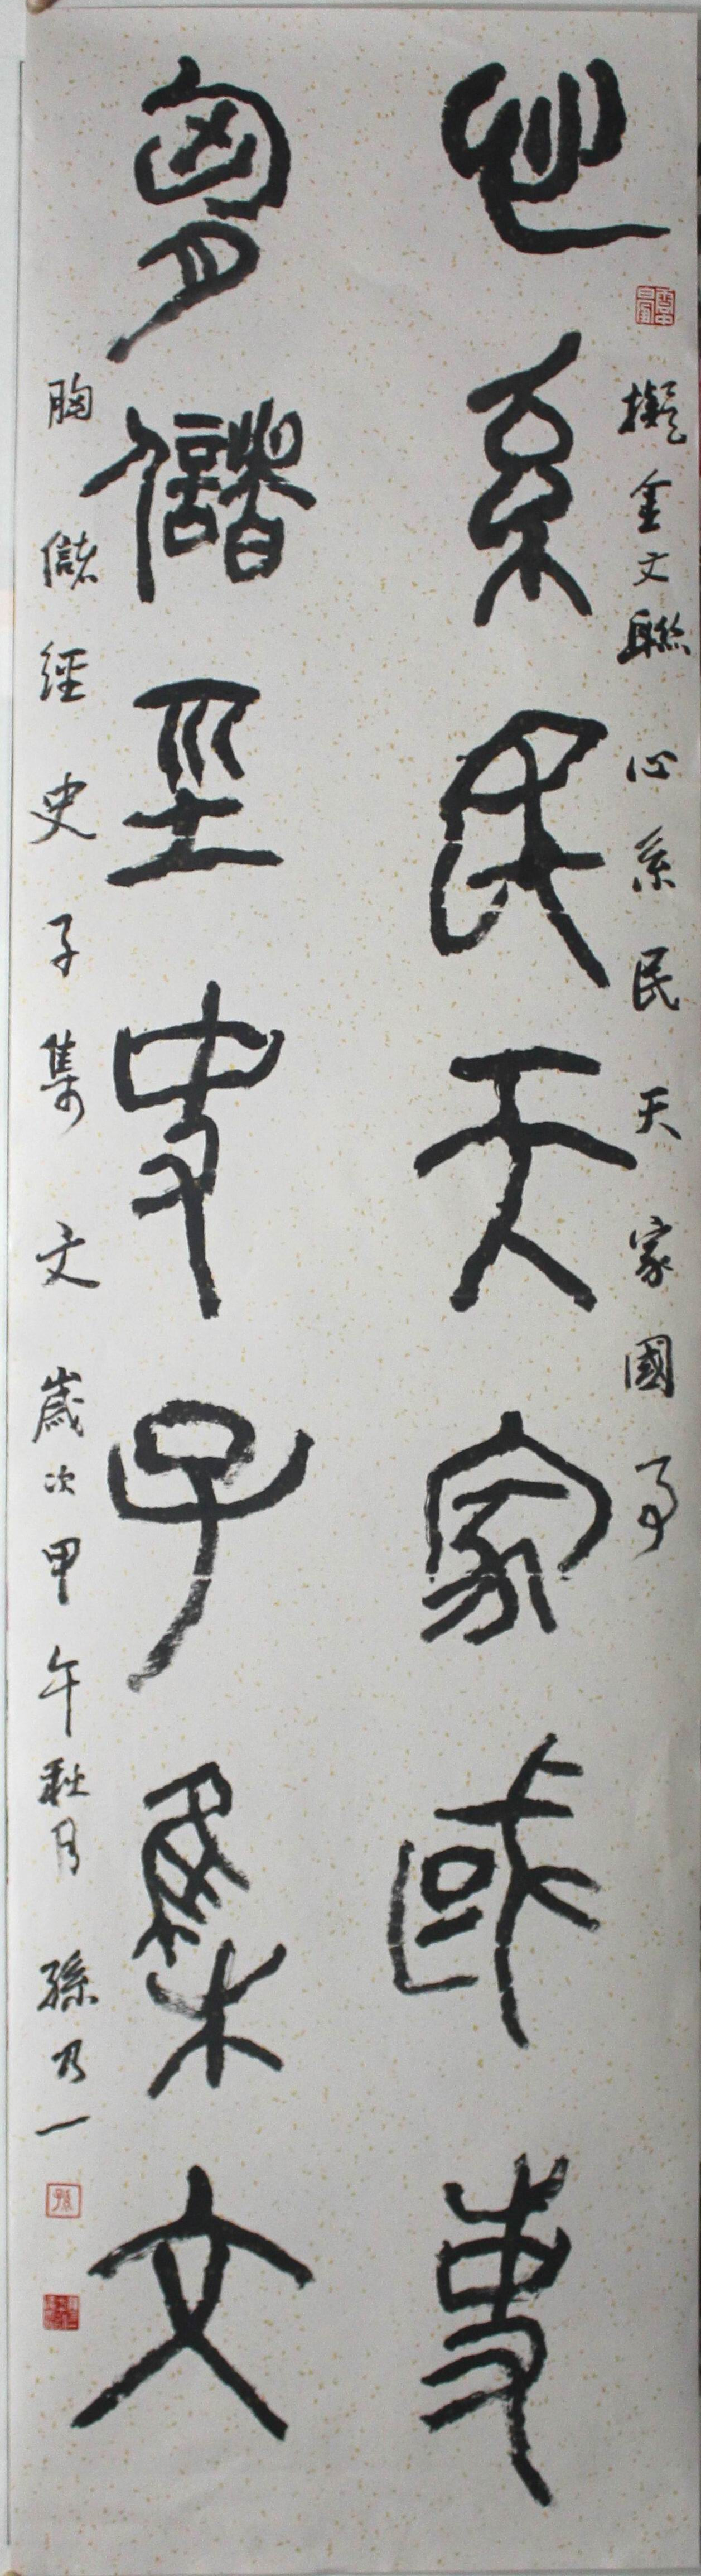 擬金文聯 心系民天家國事
心系民天家國事
胸儲經史子集文
胸儲經史子集文 歲次甲午秋月 孫乃一